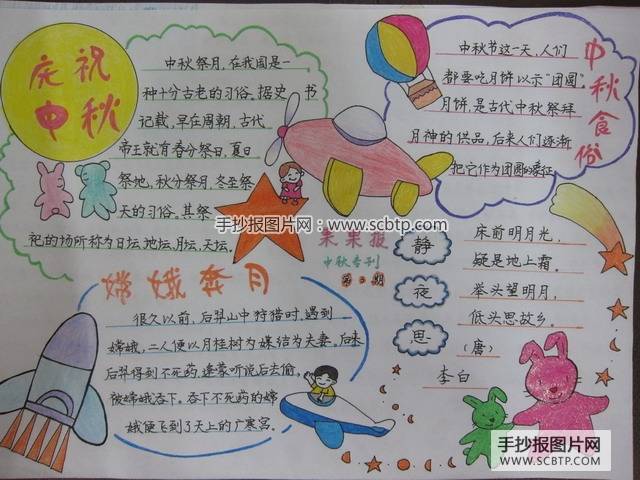 庆祝
中秋
中秋祭月,在我国是一
种十分古老的习俗。据史书
记载,早在周朝,古代
帝王就有春分祭日、夏日
祭地、秋分祭月、冬至祭
天的习俗。其祭
祀的场所称为日坛、地坛、月坛、天坛。
中秋食俗
中秋节这一天,人们
都要吃月饼以示“团圆”。
月饼,是古代中秋祭拜
月神的供品,后来人们逐渐
把它作为团圆的象征
手抄报图片网:www.scbtp.com
果果报
中秋专刊
第3期
静夜思
(唐)
李白
床前明月光,
疑是地上霜。
举头望明月,
低头思故乡。
嫦娥奔月
很久以前,后羿山中狩猎时,遇到
嫦娥,二人便以月桂树为媒结为夫妻。后来
后羿得到不死药,逢蒙听说后去偷,
被嫦娥吞下。吞下不死药的嫦
娥便飞到了天上的广寒宫。
手抄报图片网
WWW.SCBTP.COM